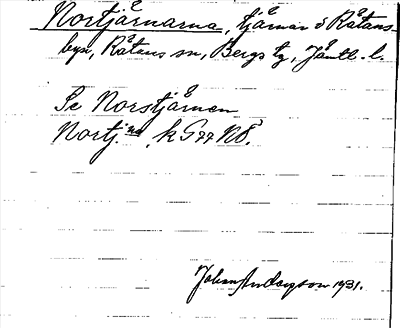 Nortjärnarna, tjärnar ö Råtans-
byn, Råtans sn, Bergs tg, Jämtl. l.
Se Norstjärnen
Nortj.na, k G 77 NÖ.
Johan Andersson 1931.